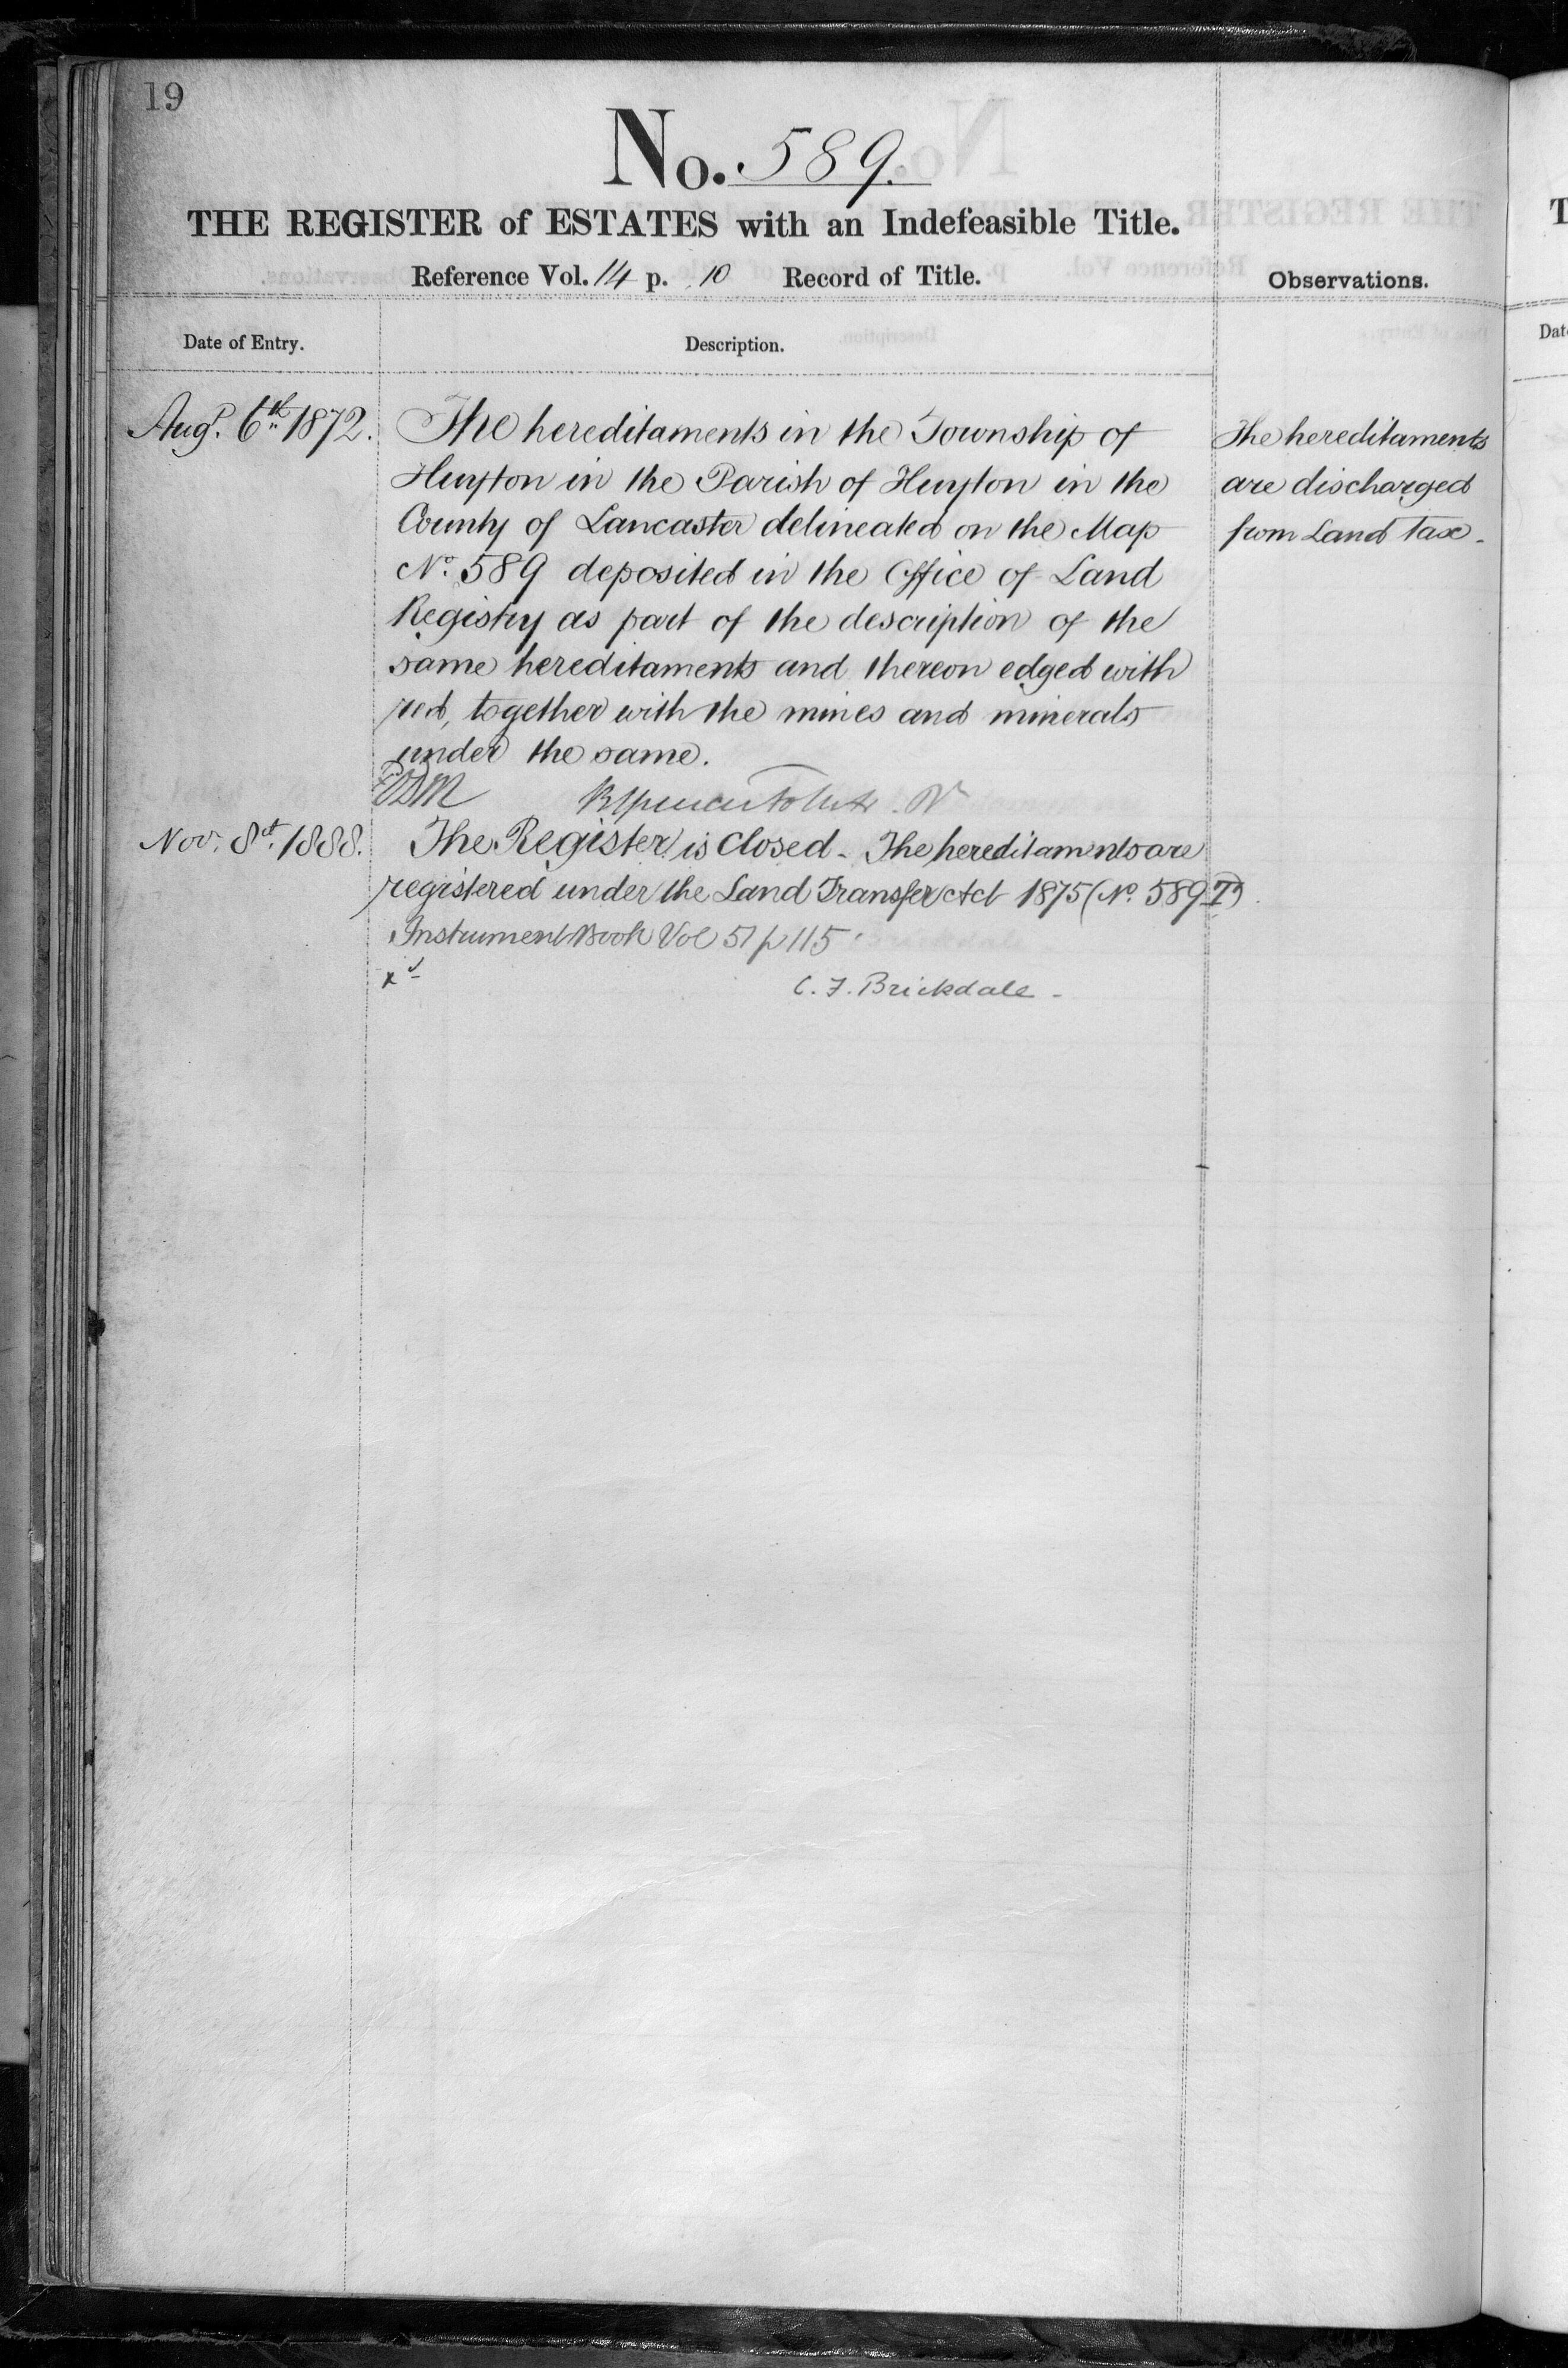 19
No. 589.
THE REGISTER of ESTATES with an Indefeasible Title.
Reference Vol. 14 p. 10 Record of Title.
Observations.
Date of Entry.
Description.
Augt. 6th 1872.
The hereditaments in the Township of
Huyton in the Parish of Huyton in the
County of Lancaster delineated on the Map
No. 589 deposited in the Office of Land
Registry as part of the description of the
same hereditaments and thereon edged with
red, together with the mines and minerals
under the same.
The hereditaments
are discharged
from Land tax.
Nov. 8th. 1888.
The Register is closed - The hereditaments are
registered under the Land Transfer Act 1875 (No. 589 T)
Instrument Book Vol 51 p 115
C. F. Brickdale -